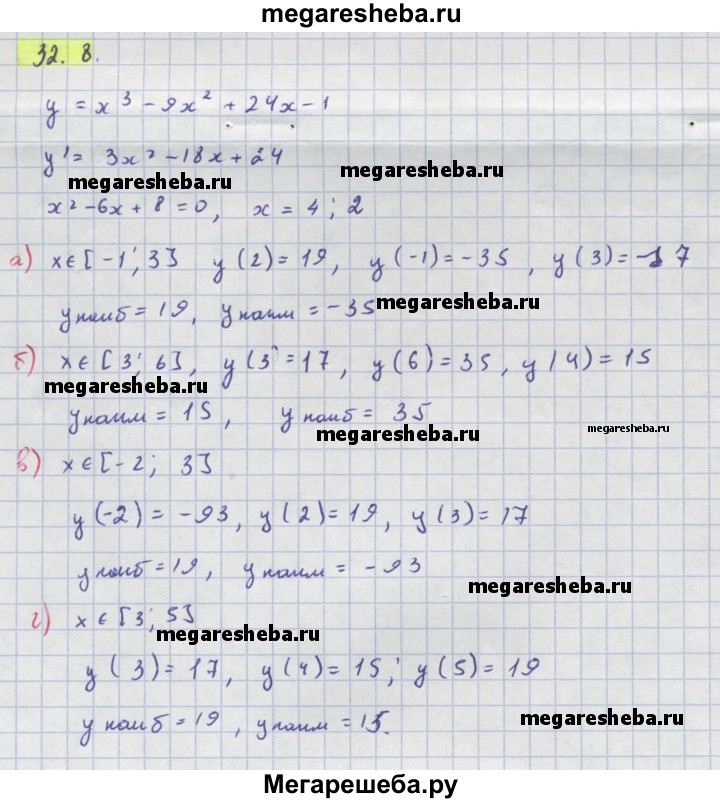 megaresheba.ru
32. 8.
y = x³ - 9x² + 24x - 1
y' = 3x² - 18x + 24
megaresheba.ru
megaresheba.ru
x² - 6x + 8 = 0, x = 4; 2
а) x ∈ [-1; 3] y(2) = 19, y(-1) = -35, y(3) = 17
y наиб = 19, y наим = -35
megaresheba.ru
б) x ∈ [3; 6], y(3 = 17, y(6) = 35, y(4) = 15
megaresheba.ru
y наим = 15, y наиб = 35
megaresheba.ru
megaresheba.ru
в) x ∈ [-2; 3]
y(-2) = -93, y(2) = 19, y(3) = 17
y наиб = 19, y наим = -93
megaresheba.ru
г) x ∈ [3; 5]
megaresheba.ru
y(3) = 17, y(4) = 15; y(5) = 19
y наиб = 19, y наим = 15.
megaresheba.ru
Мегарешеба.ру